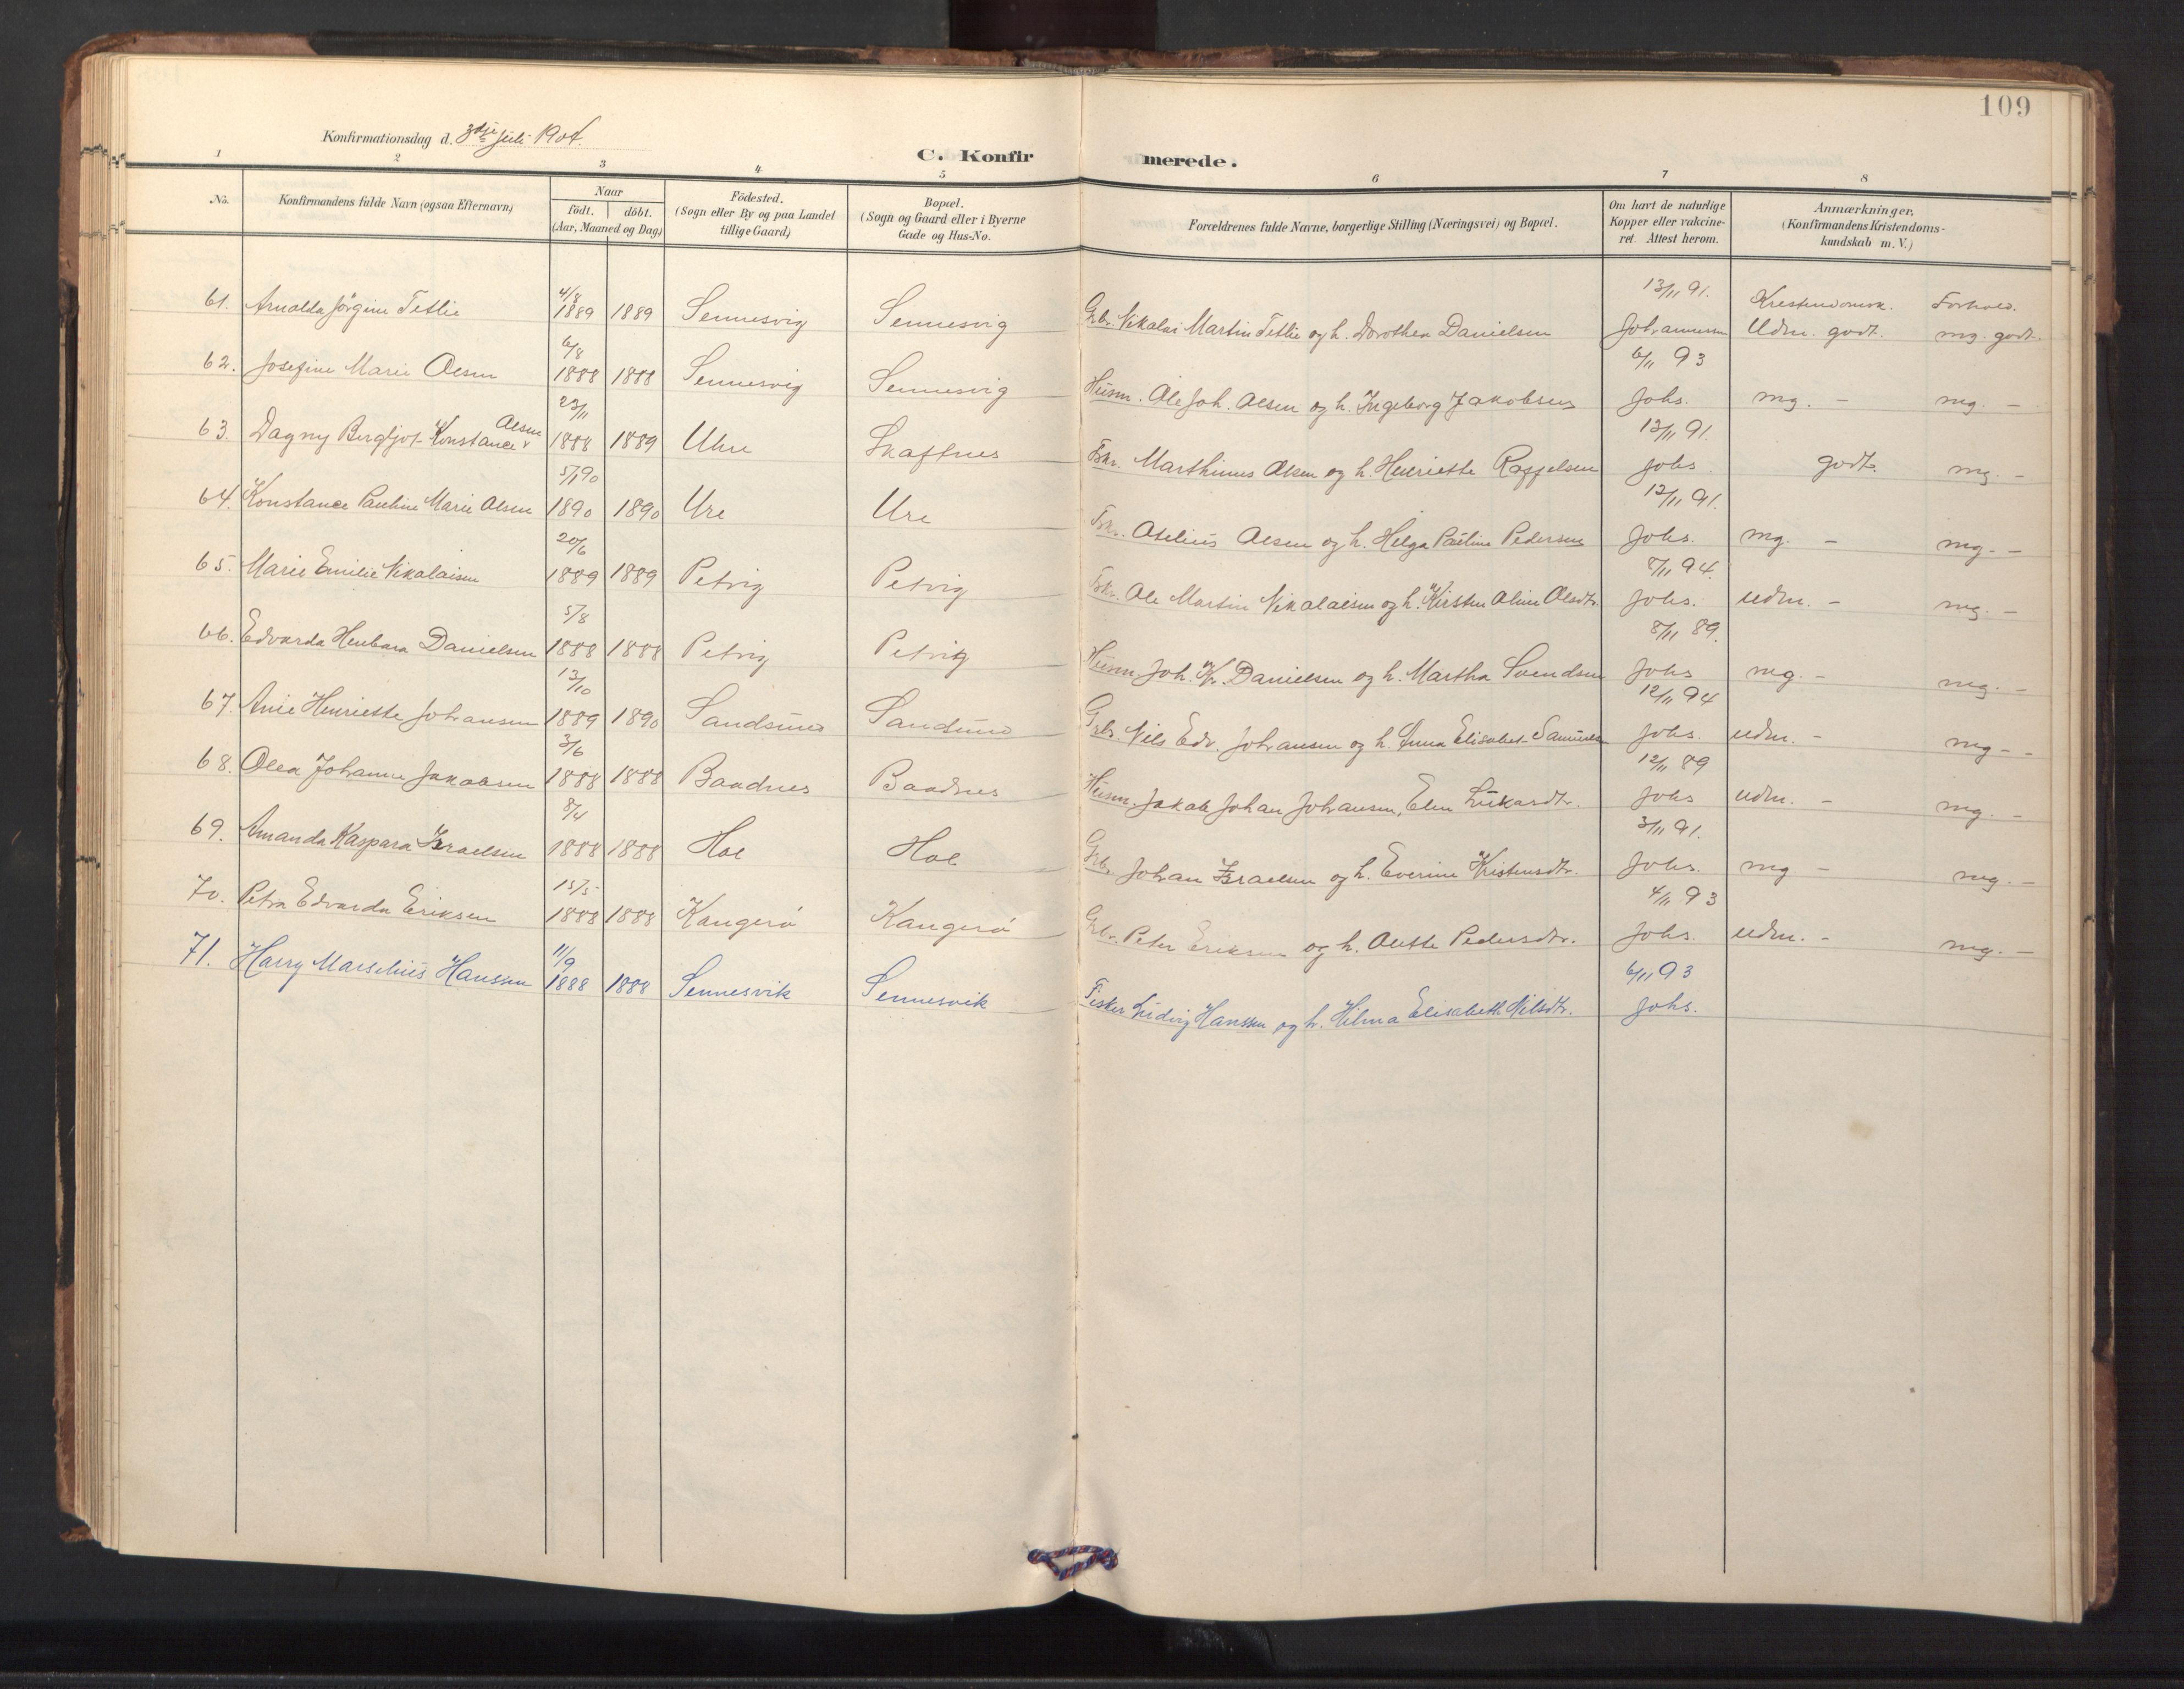 109
Konfirmationsdag d. 3die Juli 1904.
C. Konfirmerede.
1 2 3 4 5 6 7 8
No. Konfirmandens fulde Navn (ogsaa Efternavn) Naar födt. döbt. (Aar, Maaned og Dag) Födested. (Sogn eller By og paa Landet tillige Gaard) Bopæl. (Sogn og Gaard eller i Byerne Gade og Hus-No. Forældrenes fulde Navne, borgerlige Stilling (Næringsvei) og Bopæl. Om havt de naturlige Kopper eller vakcineret. Attest herom. Anmærkninger. (Konfirmandens Kristendomskundskab m. V.)
4/8 13/11 91. Kristendomsk. Forhold.
61. Arnolda Jörgine Tetlie 1889 1889 Sennesvig Sennesvig Gbr. Nikolai Martin Tetlie og h. Dorothea Danielsen Johannesen Udm. godt. mg. godt.
6/8 6/11 93
62. Josefine Marie Olsen 1888 1888 Sennesvig Sennesvig Husm. Ole Joh. Olsen og h. Ingeborg Jakobsen Johs. mg. - mg. -
23/11 13/11 91.
63. Dagny Bergljot Konstance Olsen 1888 1889 Uhre Skaftnes Fskr. Marthinus Olsen og h. Henriette Roffelsen Johs. godt. mg. -
5/1 90 12/11 91.
64. Konstance Pauline Marie Olsen 1890 1890 Ure Ure Fskr. Otelius Olsen og h. Helga Pauline Pedersen Johs. mg. - mg. -
20/6 8/11 94.
65. Marie Emilie Nikolaisen 1889 1889 Petvig Petvig Fskr. Ole Martin Nikolaisen og h. Kirsten Oline Olsdtr. Johs. udm. - mg. -
5/8 8/11 89.
66. Edvarda Henbara Danielsen 1888 1888 Petvig Petvig Husm. Joh. Kr. Danielsen og h. Martha Svendsen Johs mg. - mg. -
13/10 12/11 94
67. Anie Henriette Johansen 1889 1890 Sandsund Sandsund Gbr. Nils Edv. Johansen og h. Anna Elisabet Samuelsen Johs. udm. - mg. -
3/6 12/11 89
68. Olea Johanne Jakobsen 1888 1888 Baadnes Baadnes Husm. Jakob Johan Johansen, Elen Lukasdtr. Johs udm. - mg. -
8/4 3/11 91.
69. Amanda Kaspara Israelsen 1888 1888 Hol Hol Gbr. Johan Israelsen og h. Everine Kristensdtr. Johs. mg - mg. -
15/5 4/11 93
70. Petra Edvarda Eriksen 1888 1888 Kangerö Kangerö Gbr. Peter Eriksen og h. Olette Pedersdtr. Johs. udm. - mg. -
11/9 6/11 93
71. Harry Marselius Hanssen 1888 1888 Sennesvik Sennesvik Fisker Ludvig Hanssen og h. Hilma Elisabeth Nilsdtr. Johs.